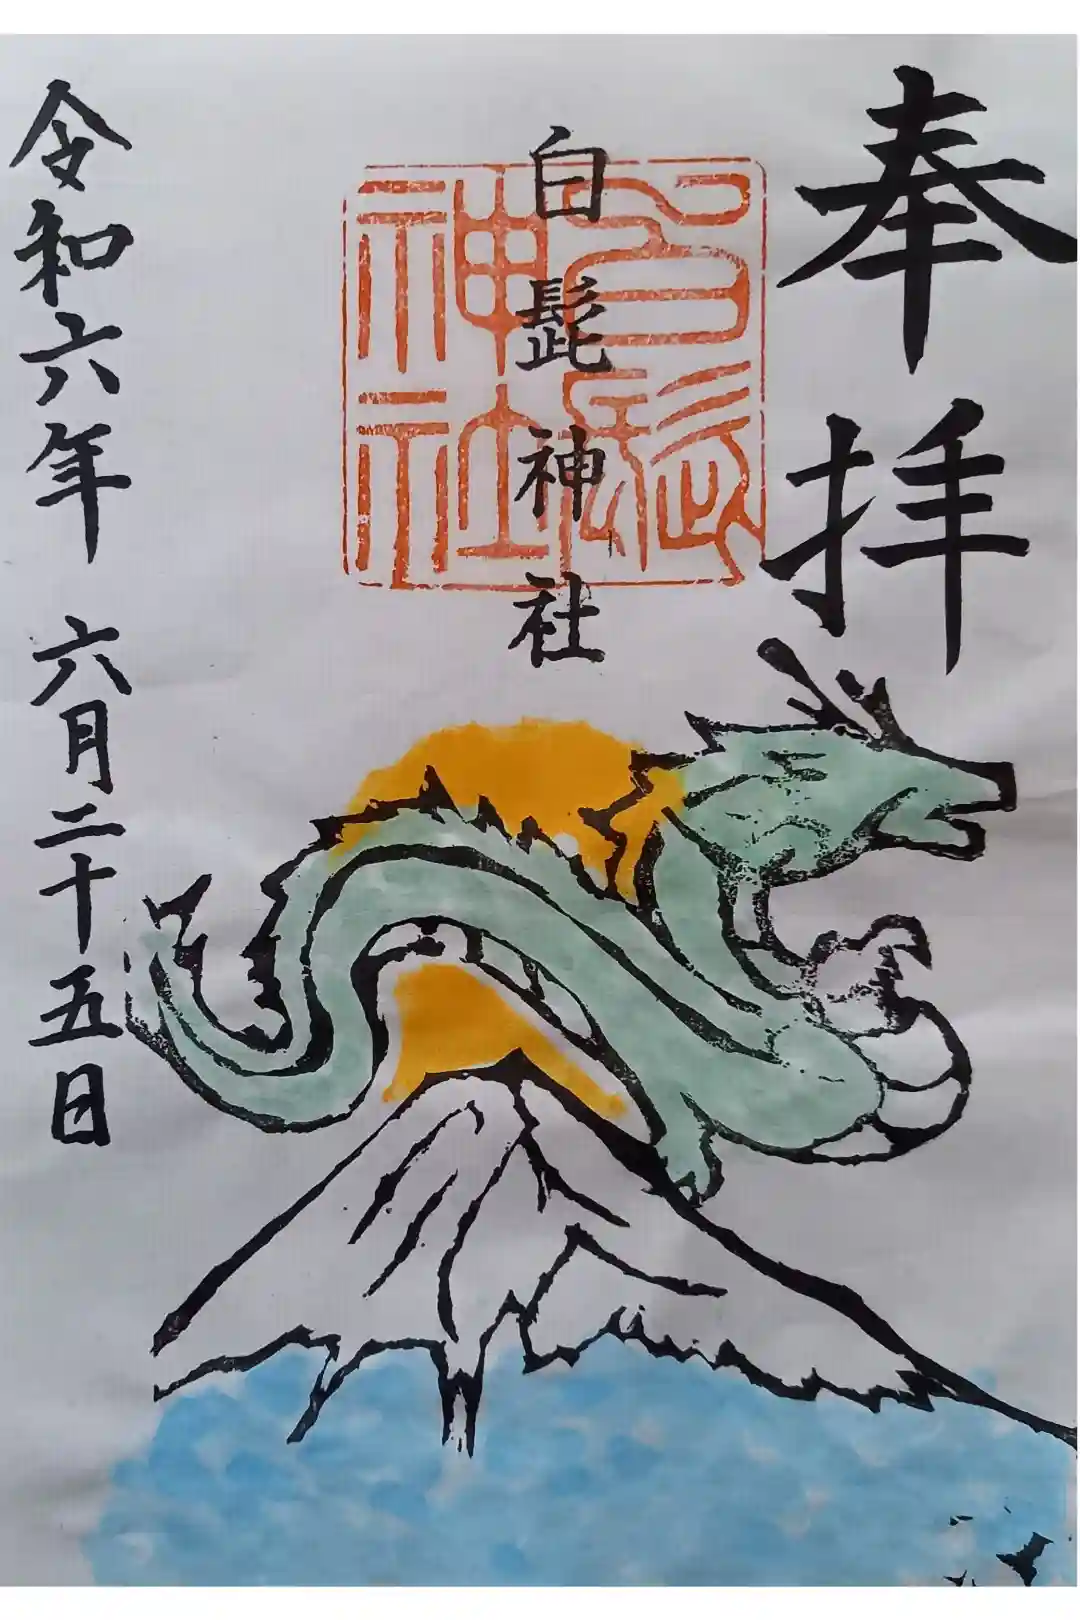 奉拝
白髭神社
神社
令和六年 六月二十五日